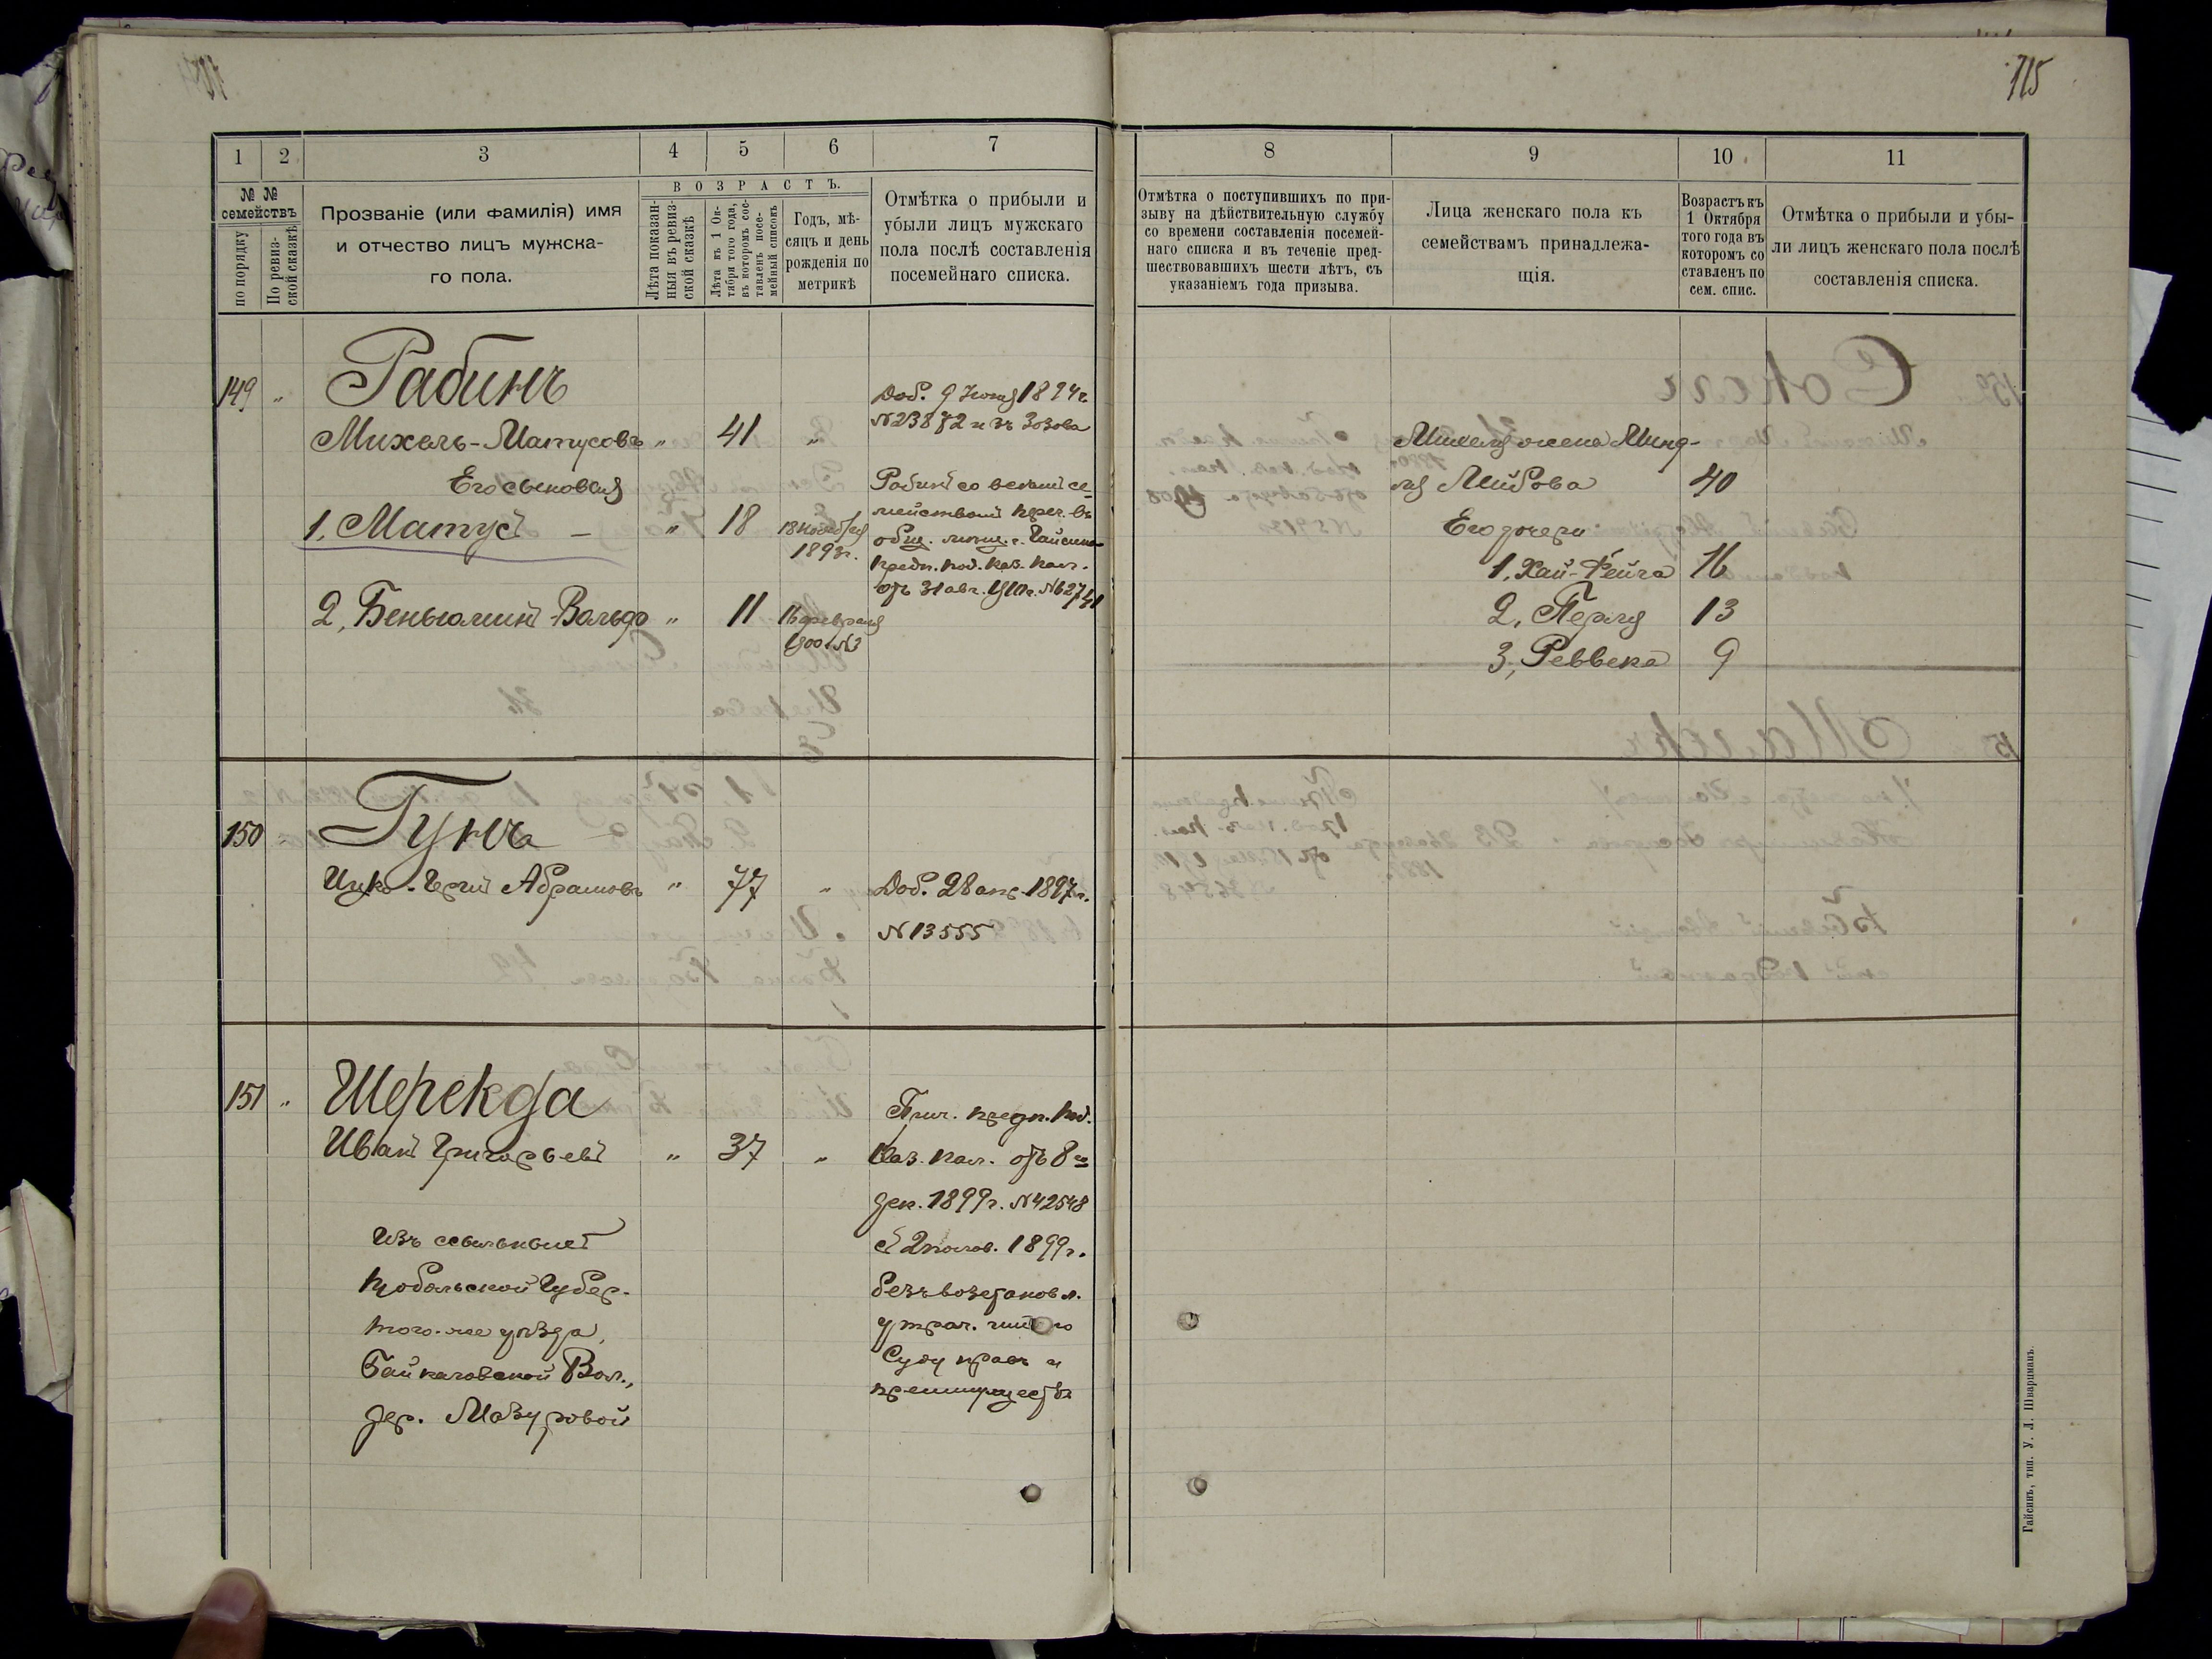 715
1
2
3
4
5
6
7
№ №
семействъ
по порядку
По ревиз-
ской сказкѣ
Прозваніе (или фамилія) имя
и отчество лицъ мужска-
го пола.
ВОЗРАСТЪ.
Лѣта показан-
ныя въ ревиз-
ской сказкѣ
Лѣта къ 1 Ок-
тября того года,
въ которомъ сос-
тавленъ посе-
мейный списокъ
Годъ, мѣ-
сяцъ и день
рожденія по
метрикѣ
Отмѣтка о прибыли и
убыли лицъ мужскаго
пола послѣ составленія
посемейнаго списка.
149 " Рабинъ
Михель-Матусовъ " 41 "
Его сыновья
1, Матус - " 18 18 ноября
1893г.
2, Беньюминъ-Вольфъ " 11 16 февраля
1900 г. №3
Доб. 9 1894г.
№23872 изъ
Рабинъ со всемъ се-
мействомъ переч. въ
общ. г. Гайсина
предп. под. каз. пал.
отъ 31 авг. 1910г. №62741
150 Гунъ
Ицко-Герш Абрамовъ " 77 " Доб. 28 апр. 1897г.
№13555
151 " Шерекда
Иванъ Григорьевъ " 37 "
Изъ ссыльныхъ
Тобольской Губер.
того-же уѣзда,
Байкаловской Вол.,
дер. Мазуровой
Прич. предп. под.
Каз. пал. отъ 8го
дек. 1899г. №42548
съ 2 полов. 1899г.
безъ возстановл.
утрач. по
Суду правъ и
преимуществъ
8
9
10
11
Отмѣтка о поступившихъ по при-
зыву на дѣйствительную службу
со времени составленія посемей-
наго списка и въ теченіе пред-
шествовавшихъ шести лѣтъ, съ
указаніемъ года призыва.
Лица женскаго пола къ
семействамъ принадлежа-
щія.
Возрастъ къ
1 Октября
того года въ
которомъ со
ставленъ по
сем. спис.
Отмѣтка о прибыли и убы-
ли лицъ женскаго пола послѣ
составленія списка.
Михеля жена Минд-
ля Лейбова 40
Его дочери
1, Хая-Фейга 16
2, Перля 13
3, Реввека 9
Гайсинъ, тип. У. Л. Шварцманъ.